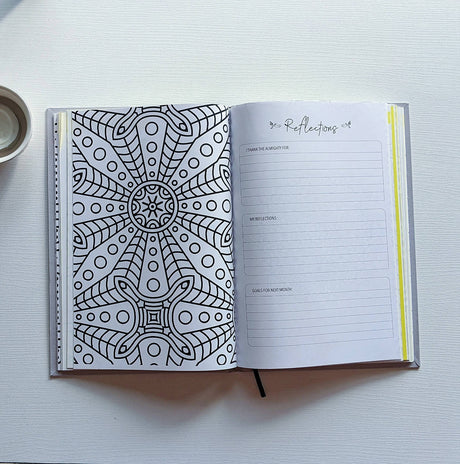 Reflections
I THANK THE ALMIGHTY FOR
MY REFLECTIONS
GOALS FOR NEXT MONTH